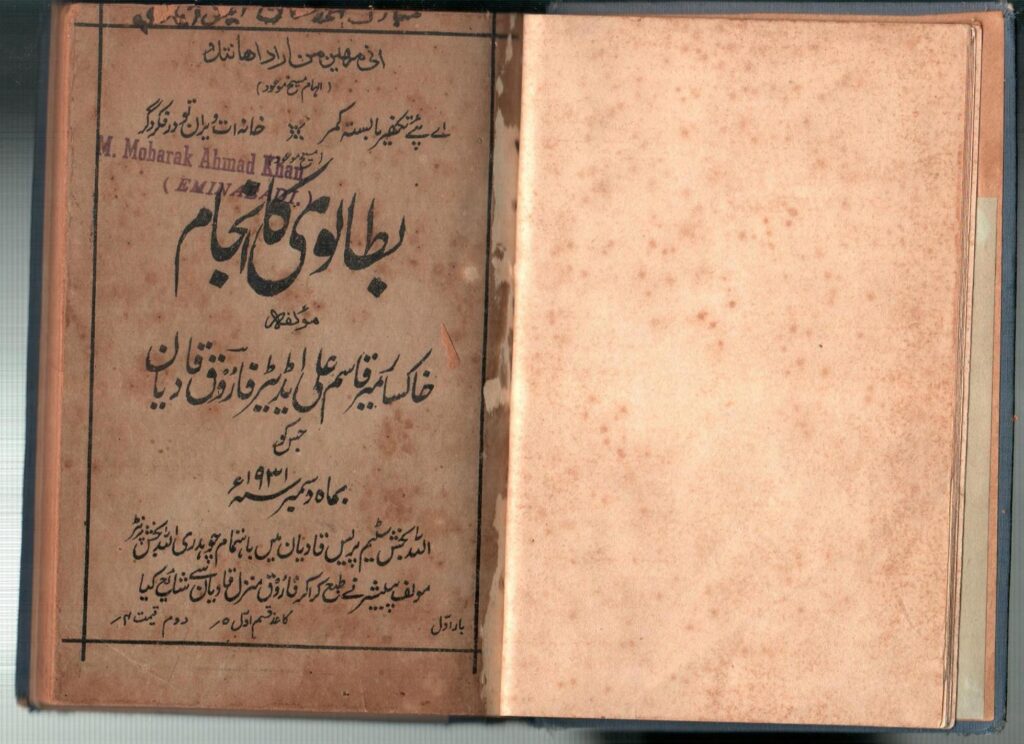 انی مهین من اراد اهانتک
(الہام مسیح موعود)
اے پئے تکفیر ما بستہ کمر خانہ ات ویران تو در فکر دگر
M. Mobarak Ahmad Khan
(EMINABADI.)
بطالوی کا انجام
مؤلفہ
خاکسار میر قاسم علی ایڈیٹر فاروق قادیان
جس کو
بماہ دسمبر ۱۹۳۱ء
اللہ بخش سٹیم پریس قادیان میں باہتمام چوہدری اللہ بخش پرنٹر
مولف پبلیشر نے طبع کرا کر فاروق منزل قادیان سے شائع کیا
بار اوّل کاغذ قسم اوّل ۵؍ دوم قیمت ۴؍